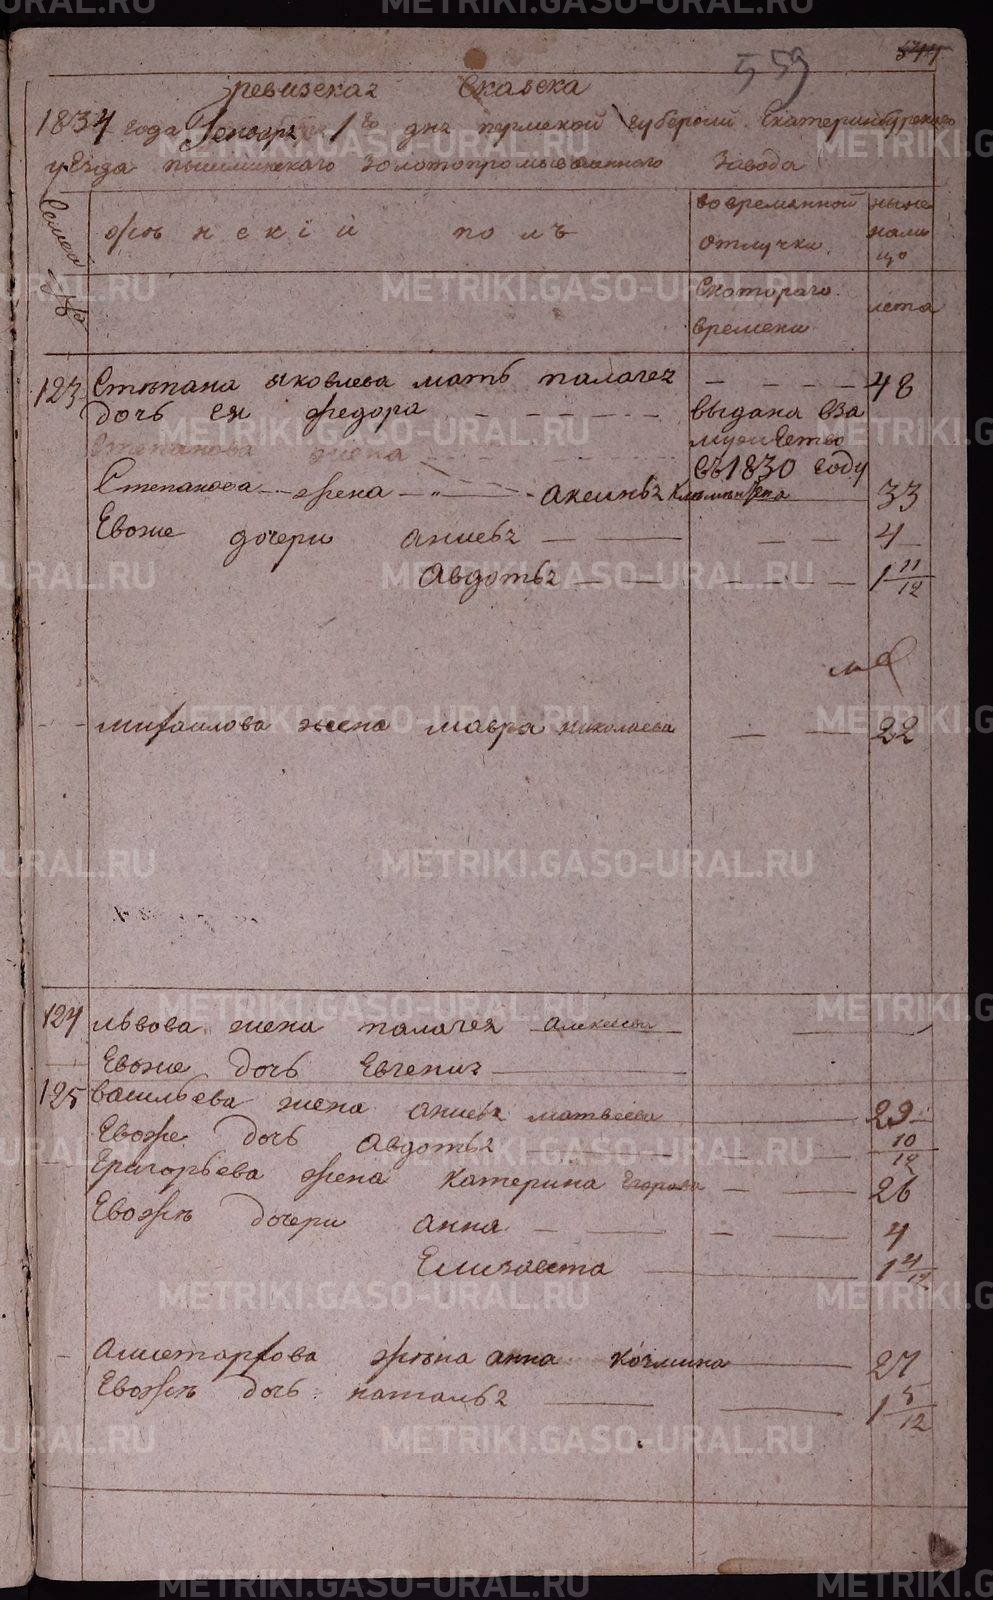 559
544
ревизская Сказска
1834 года Генваря 1го дня пермской губернии Екатеринбурскаго
уезда пышминскаго золотопромываленного Завода
Семей
женский полъ
вовременной
отлучки
ныне
нали
цо
Скотораго
времени
лета
123 Степана яковлева мать палагея — — — — 48
дочь ея федора — — — — выдана вза
Степанова жена мужество
въ 1830 году
Степанова жена — " — Аксинья 33
Евоже дочери анисья — — — — 4
Авдотья — — — — 1 11/12
михаилова жена мавра николаева — — 22
124 львова жена палагея Алексеева
Евоже дочь Евгения
125 васильева жена анисья матвеева 29
Евоже дочь Авдотья 10/12
Григорьева жена катерина Егорова — — 26
Евоже дочери анна — — — — 4
Елизавета 1 4/12
Алистархова жена анна козмина 27
Евоже дочь наталья 1 5/12
METRIKI.GASO-URAL.RU